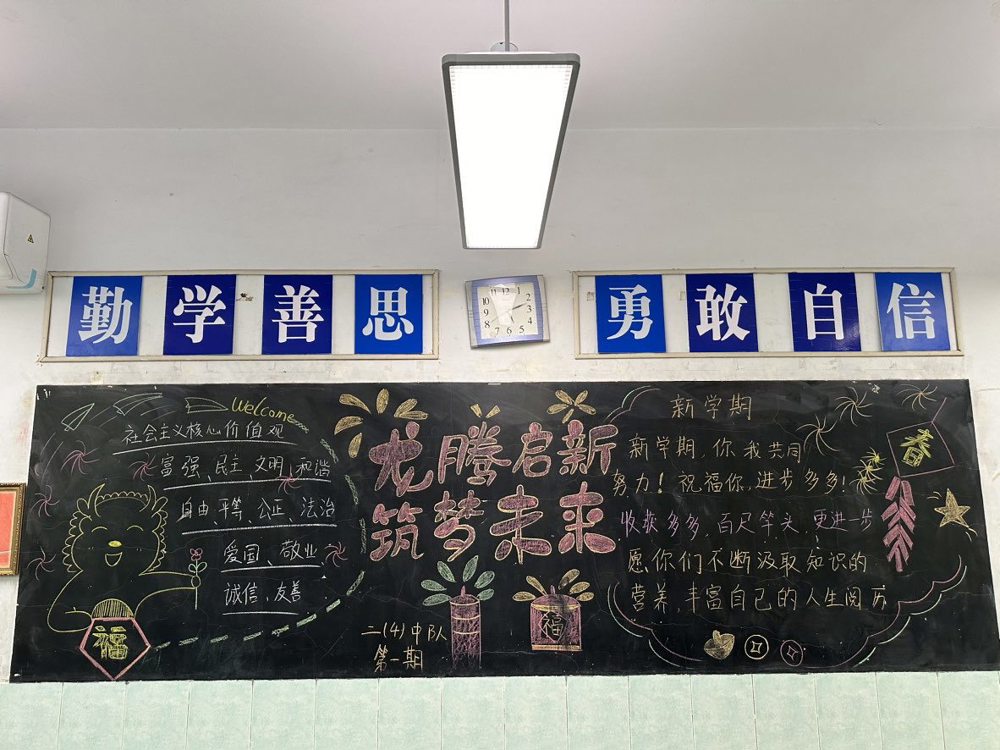 勤学善思
勇敢自信
12
1
2
3
4
5
6
7
8
9
10
11
Welcome
社会主义核心价值观
富强、民主、文明、和谐
自由、平等、公正、法治
爱国、敬业、
诚信、友善
福
龙腾启新
筑梦未来
二(4)中队
第一期
福
新学期
新学期,你我共同
努力!祝福你,进步多多!
收获多多,百尺竿头,更进一步
愿你们不断汲取知识的
营养,丰富自己的人生阅历
春